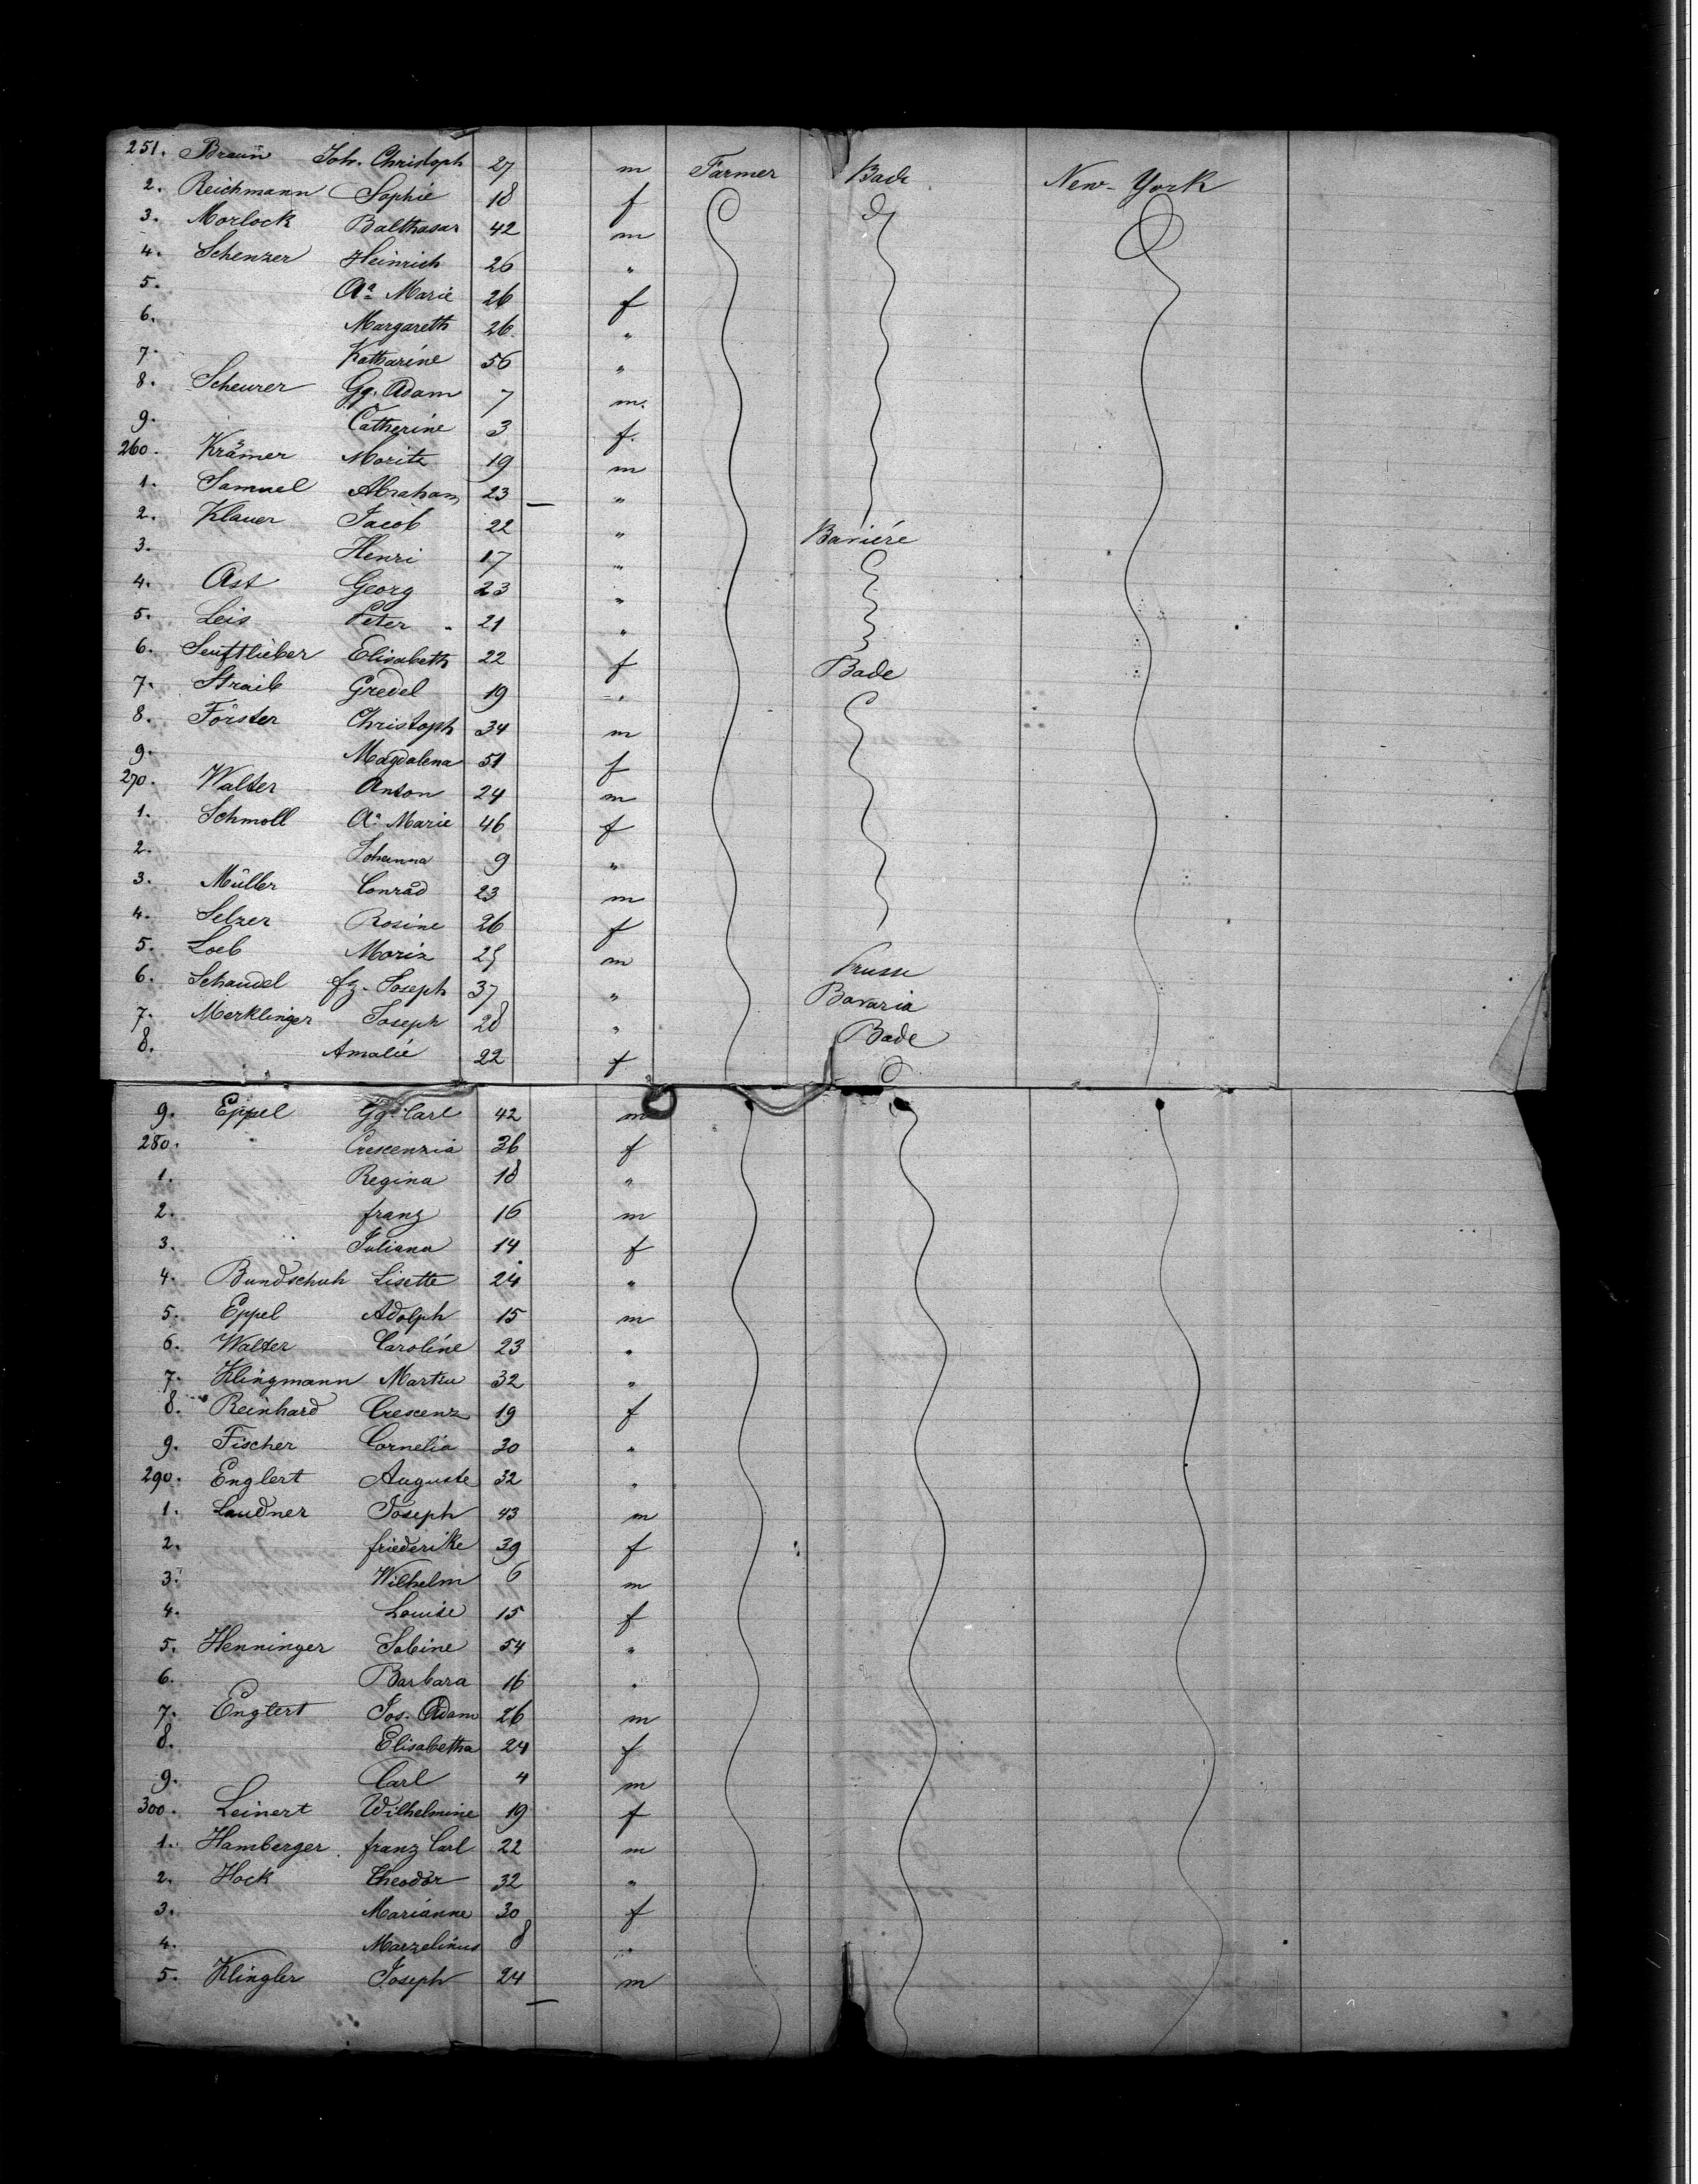 251. Braun Joh. Christoph 27 m Farmer Bade New-York
2. Reichmann Sophie 18 f
3. Morlock Balthasar 42 m
4. Schenzer Heinrich 26 "
5. Aa Marie 26 f
6. Margareth 26 "
7. Katharine 56 "
8. Scheurer Gg. Adam 7 m.
9. Catherine 3 f.
260. Krämer Moritz 19 m
1. Samuel Abraham 23 "
2. Klauer Jacob 22 " Baviére
3. Henri 17 "
4. Ast Georg 23 "
5. Leis Peter 21 "
6. Senftlieber Elisabeth 22 f Bade
7. Straib Gredel 19 "
8. Förster Christoph 34 m
9. Magdalena 51 f
270. Walter Anton 24 m
1. Schmoll Aa Marie 46 f
2. Johanna 9 "
3. Müller Conrad 23 m
4. Selzer Rosine 26 f
5. Loeb Moriz 25 m Prusse
6. Schaudel fz. Joseph 37 " Bavaria
7. Merklinger Joseph 28 " Bade
8. Amalie 22 f
9. Eppel Gg. Carl 42 m
280. Crescenzia 36 f
1. Regina 18 "
2. franz 16 m
3. Juliana 14 f
4. Bundschuh Lisette 24 "
5. Eppel Adolph 15 m
6. Walter Caroline 23 "
7. Klingmann Martin 32 "
8. Reinhard Crescenz 19 f
9. Fischer Cornelia 20 "
290. Englert Auguste 32 "
1. Laudner Joseph 43 m
2. friederike 39 f
3. Wilhelm 6 m
4. Louise 15 f
5. Henninger Sabine 54 "
6. Barbara 16 "
7. Englert Jos. Adam 26 m
8. Elisabetha 24 f
9. Carl 4 m
300. Leinert Wilhelmine 19 f
1. Hamberger franz Carl 22 m
2. Hock Theodor 32 "
3. Marianne 30 f
4. Marzelinus 8 "
5. Klingler Joseph 24 m